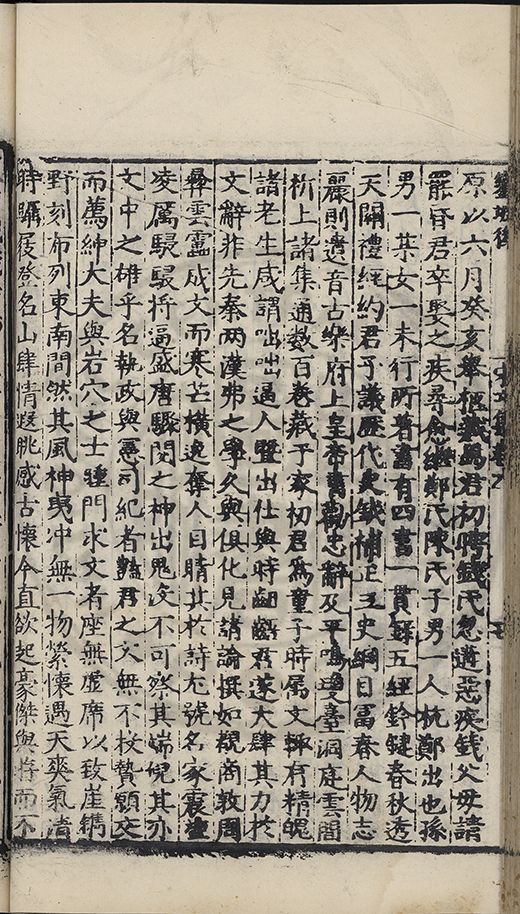 鑾坡後
原以六月癸亥舉柩塟焉君初聘錢氏忽遘惡疾錢父母請
罷昏君卒娶之疾尋愈繼鄭氏陳氏子男一人杭鄭出也孫
男一某女一未行所著書有四書一貫錄五經鈐鍵春秋透
天關禮經約君子議歷代史鉞補正三史綱目富春人物志
麗則遺音古樂府上皇帝書勸忠辭及平鳴瓊臺洞庭雲間
祈上諸集通數百卷藏于家初君為童子時屬文輒有精魄
諸老生咸謂咄咄逼人暨出仕與時齟齬君遂大肆其力於
文辭非先秦兩漢弗之學久與俱化見諸論撰如覩商敦周
彝雲罍成文而寒芒橫逸奪人目睛其於詩尤號名家震盪
凌厲駸駸將逼盛唐驟閱之神出鬼沒不可察其端倪其亦
文中之雄乎名執政與憲司紀者豔君之文無不投贄願交
而薦紳大夫與岩穴之士踵門求文者座無虛席以致崖鐫
野刻布列東南間然其風神夷冲無一物縈懷遇天爽氣清
時躡屐登名山肆情遐眺感古懷今直欲起豪傑與而不